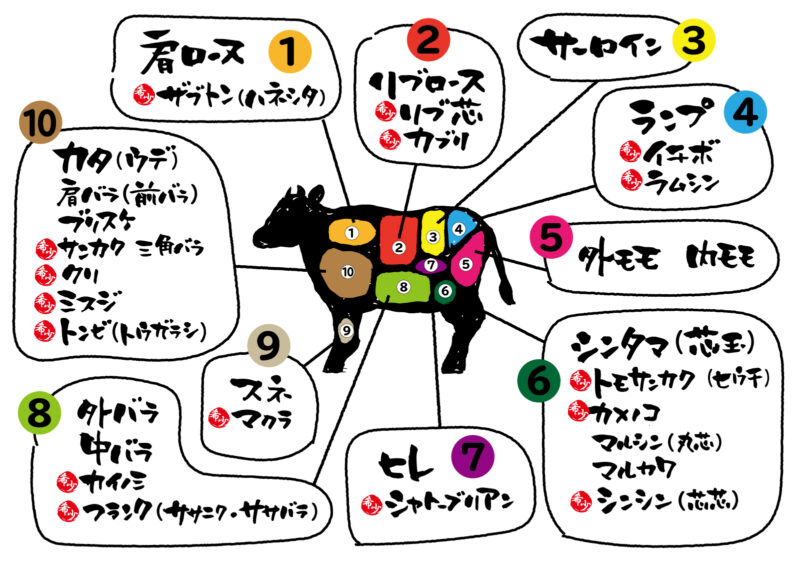 1
肩ロース
希少 ザブトン(ハネシタ)
2
リブロース
希少 リブ芯
希少 カブリ
サーロイン 3
4
ランプ
希少 イチボ
希少 ラムシン
5
外モモ 内モモ
6
シンタマ(芯玉)
希少 トモサンカク(ヒウチ)
希少 カメノコ
マルシン(丸芯)
マルカワ
希少 シンシン(芯芯)
7
ヒレ
希少 シャトーブリアン
8
外バラ
中バラ
希少 カイノミ
希少 フランク(ササニク・ササバラ)
9
スネ
希少 マクラ
10
カタ(ウデ)
肩バラ(前バラ)
ブリスケ
希少 サンカク 三角バラ
希少 クリ
希少 ミスジ
希少 トンビ(トウガラシ)
1
2
3
4
5
6
7
8
9
10